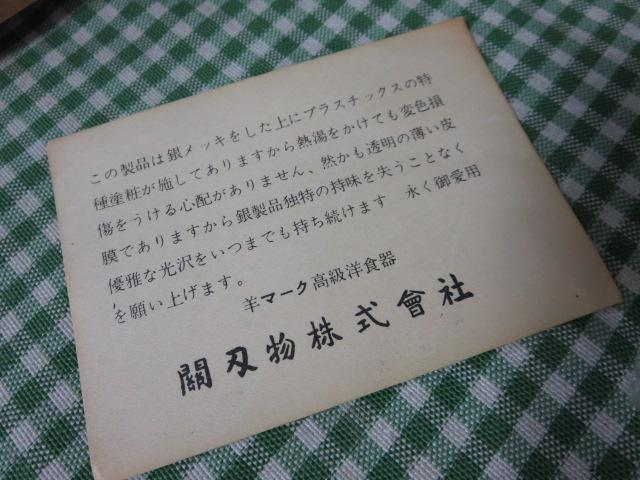 この製品は銀メッキをした上にプラスチックスの特
種塗粧が施してありますから熱湯をかけても変色損
傷をうける心配がありません、然かも透明の薄い皮
膜でありますから銀製品独特の持味を失うことなく
優雅な光沢をいつまでも持ち続けます　永く御愛用
を願い上げます。
羊マーク高級洋食器
關刃物株式會社